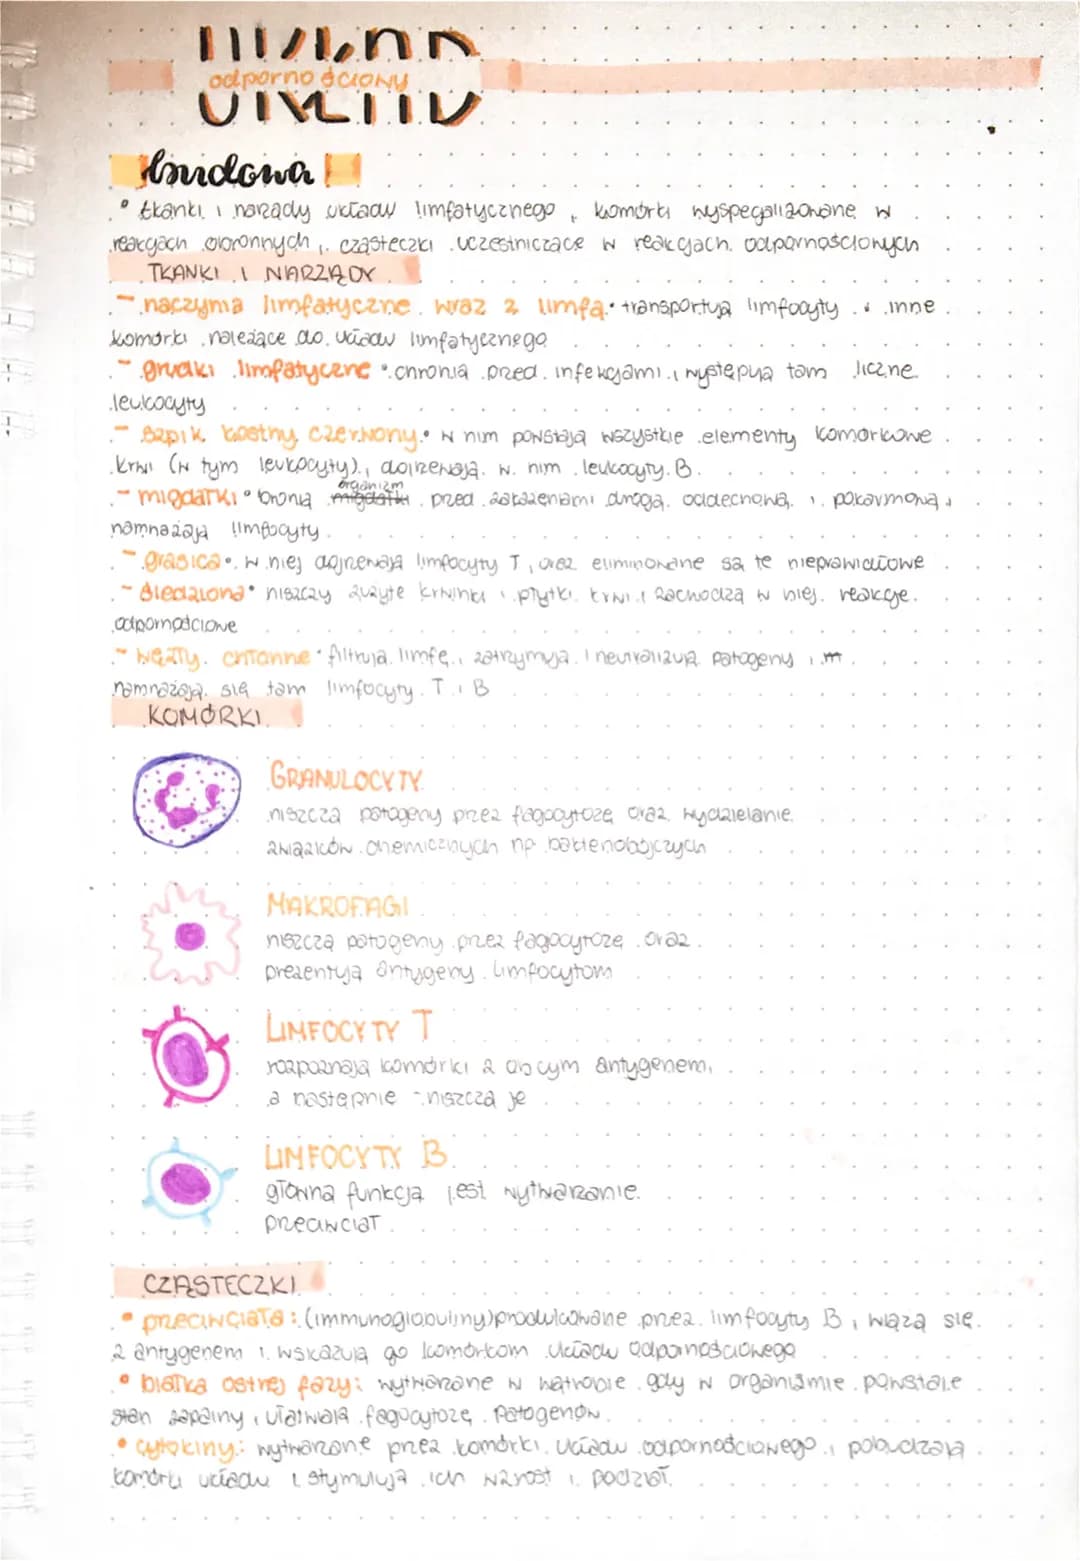 UKŁAD
odpornościowy
budowa
° tkanki i narządy układu limfatycznego, komórki wyspecjalizowane w
reakcjach obronnych, cząsteczki uczestniczące w reakcjach odpornościowych
TKANKI I NARZĄDY
- naczynia limfatyczne wraz z limfą • transportują limfocyty i inne
komórki należące do układu limfatycznego
- grudki limfatyczne • chronią przed infekcjami, występują tam liczne
leukocyty
- szpik kostny czerwony • w nim powstają wszystkie elementy komórkowe
krwi (w tym leukocyty), dojrzewają w nim leukocyty B.
- migdałki • bronią organizm przed zakażeniami drogą oddechową i pokarmową,
namnażają limfocyty
- grasica • w niej dojrzewają limfocyty T, oraz eliminowane są te nieprawidłowe
- śledziona • niszczy zużyte krwinki i płytki krwi i zachodzą w niej reakcje
odpornościowe
- węzły chłonne • filtrują limfę, zatrzymują i neutralizują patogeny i
namnażają się tam limfocyty T i B
KOMÓRKI
GRANULOCYTY
niszczą patogeny przez fagocytozę oraz wydzielanie
związków chemicznych np bakteriobójczych
MAKROFAGI
niszczą patogeny przez fagocytozę oraz
prezentują antygeny limfocytom
LIMFOCYTY T
rozpoznają komórki z obcym antygenem,
a następnie - niszczą je
LIMFOCYTY B
główną funkcją jest wytwarzanie
przeciwciał
CZĄSTECZKI
• przeciwciała: (immunoglobuliny) produkowane przez limfocyty B, wiążą się
z antygenem i wskazują go komórkom układu odpornościowego
• białka ostrej fazy: wytwarzane w wątrobie gdy w organizmie powstaje
stan zapalny, ułatwiają fagocytozę patogenów
• cytokiny: wytwarzane przez komórki układu odpornościowego, pobudzają
komórki układu i stymulują ich wzrost i podział.